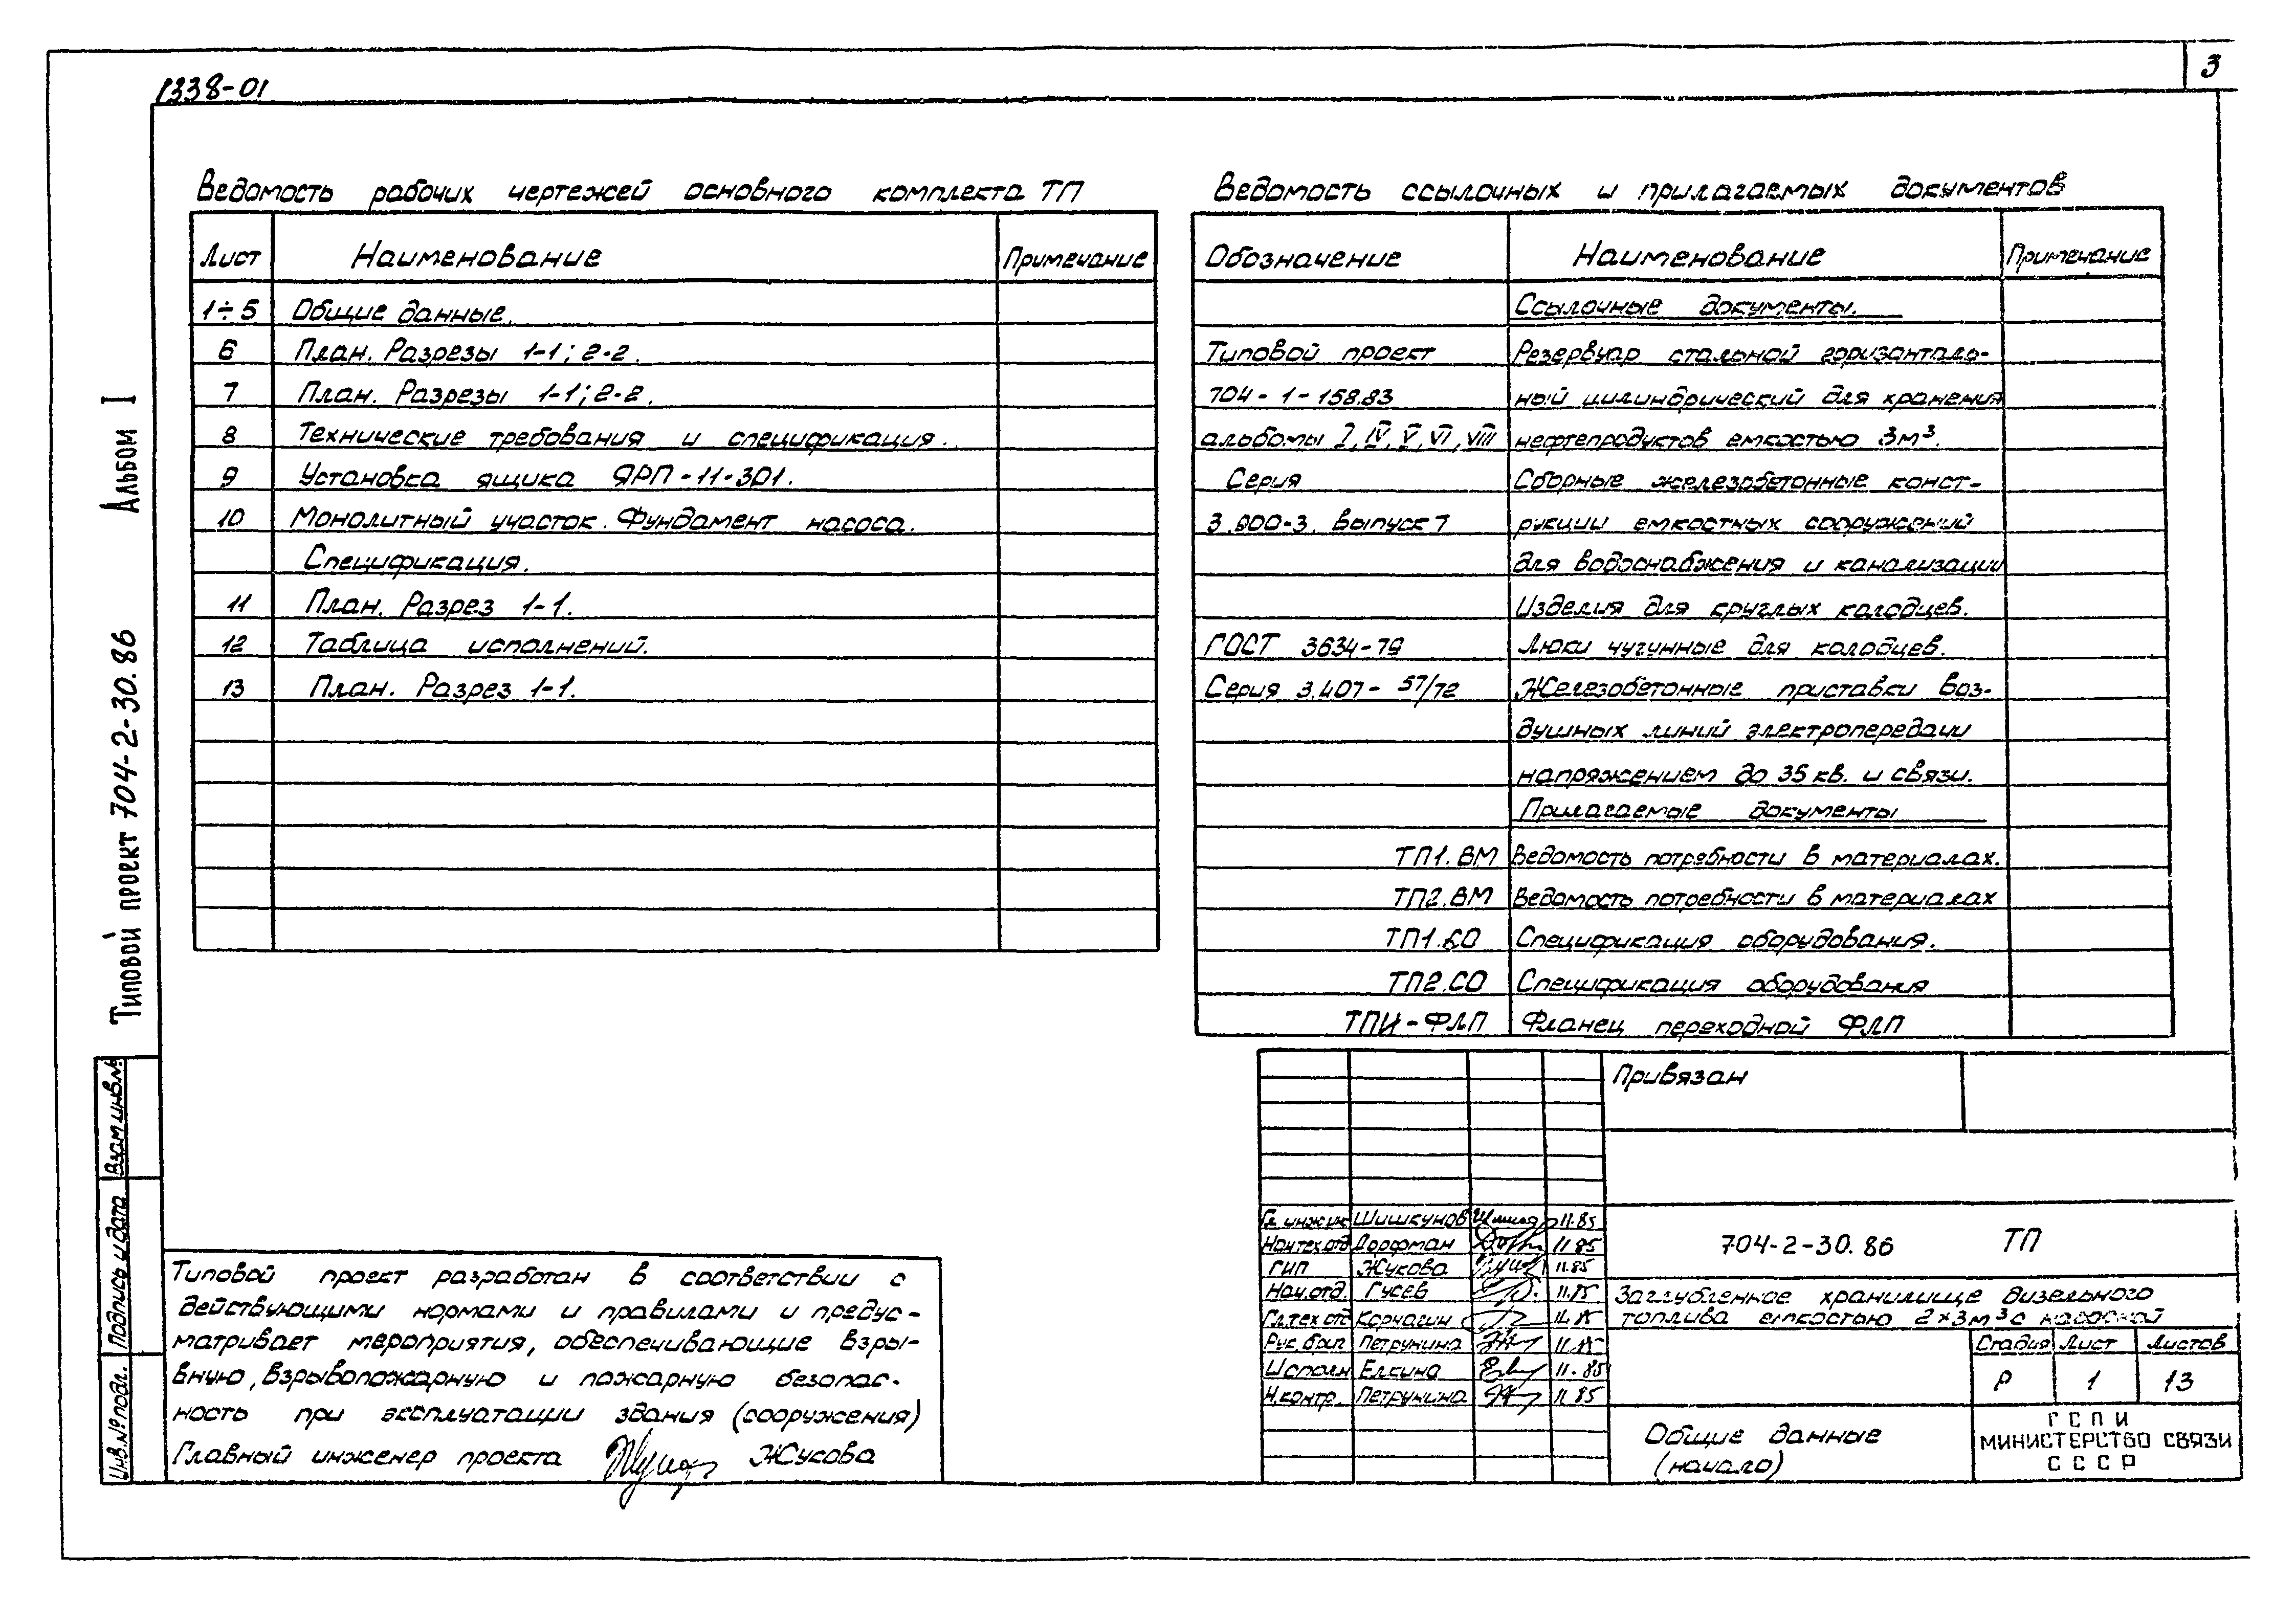 3
1338-01
Альбом I
Типовой проект 704-2-30.86
Ведомость рабочих чертежей основного комплекта ТП
Лист Наименование Примечание
1÷5 Общие данные.
6 План. Разрезы 1-1; 2-2.
7 План. Разрезы 1-1; 2-2.
8 Технические требования и спецификация.
9 Установка ящика ЯРП-11-301.
10 Монолитный участок. Фундамент насоса.
Спецификация.
11 План. Разрез 1-1.
12 Таблица исполнений.
13 План. Разрез 1-1.
Ведомость ссылочных и прилагаемых документов
Обозначение Наименование Примечание
Ссылочные документы.
Типовой проект Резервуар стальной горизонталь-
704-1-158.83 ный цилиндрический для хранения
альбомы I, IV, V, VI, VIII нефтепродуктов емкостью 3м³.
Серия Сборные железобетонные конст-
3.900-3. выпуск 7 рукции емкостных сооружений
для водоснабжения и канализации
Изделия для круглых колодцев.
ГОСТ 3634-79 Люки чугунные для колодцев.
Серия 3.407-57/72 Железобетонные приставки воз-
душных линий электропередачи
напряжением до 35 кв. и связи.
Прилагаемые документы
ТП1.ВМ Ведомость потребности в материалах.
ТП2.ВМ Ведомость потребности в материалах
ТП1.СО Спецификация оборудования.
ТП2.СО Спецификация оборудования
ТПИ-ФЛП Фланец переходной ФЛП
Взам инв.№
Подпись и дата
Инв.№ подл.
Типовой проект разработан в соответствии с
действующими нормами и правилами и предус-
матривает мероприятия, обеспечивающие взры-
вную, взрывопожарную и пожарную безопас-
ность при эксплуатации здания (сооружения)
Главный инженер проекта Жукова
Привязан
Гл инжен Шишкунов 11.85
Нач.тех.отд Дорфман 11.85
ГИП Жукова 11.85
Нач.отд. Гусев 11.85
Гл.тех отд Корчагин 11.85
Рук.бриг Петрунина 11.85
Исполн Елкина 11.85
Н.контр. Петрунина 11.85
704-2-30.86 ТП
Заглубленное хранилище дизельного
топлива емкостью 2×3м³ с насосной
Стадия Лист Листов
Р 1 13
Общие данные
(начало)
ГСПИ
МИНИСТЕРСТВО СВЯЗИ
СССР